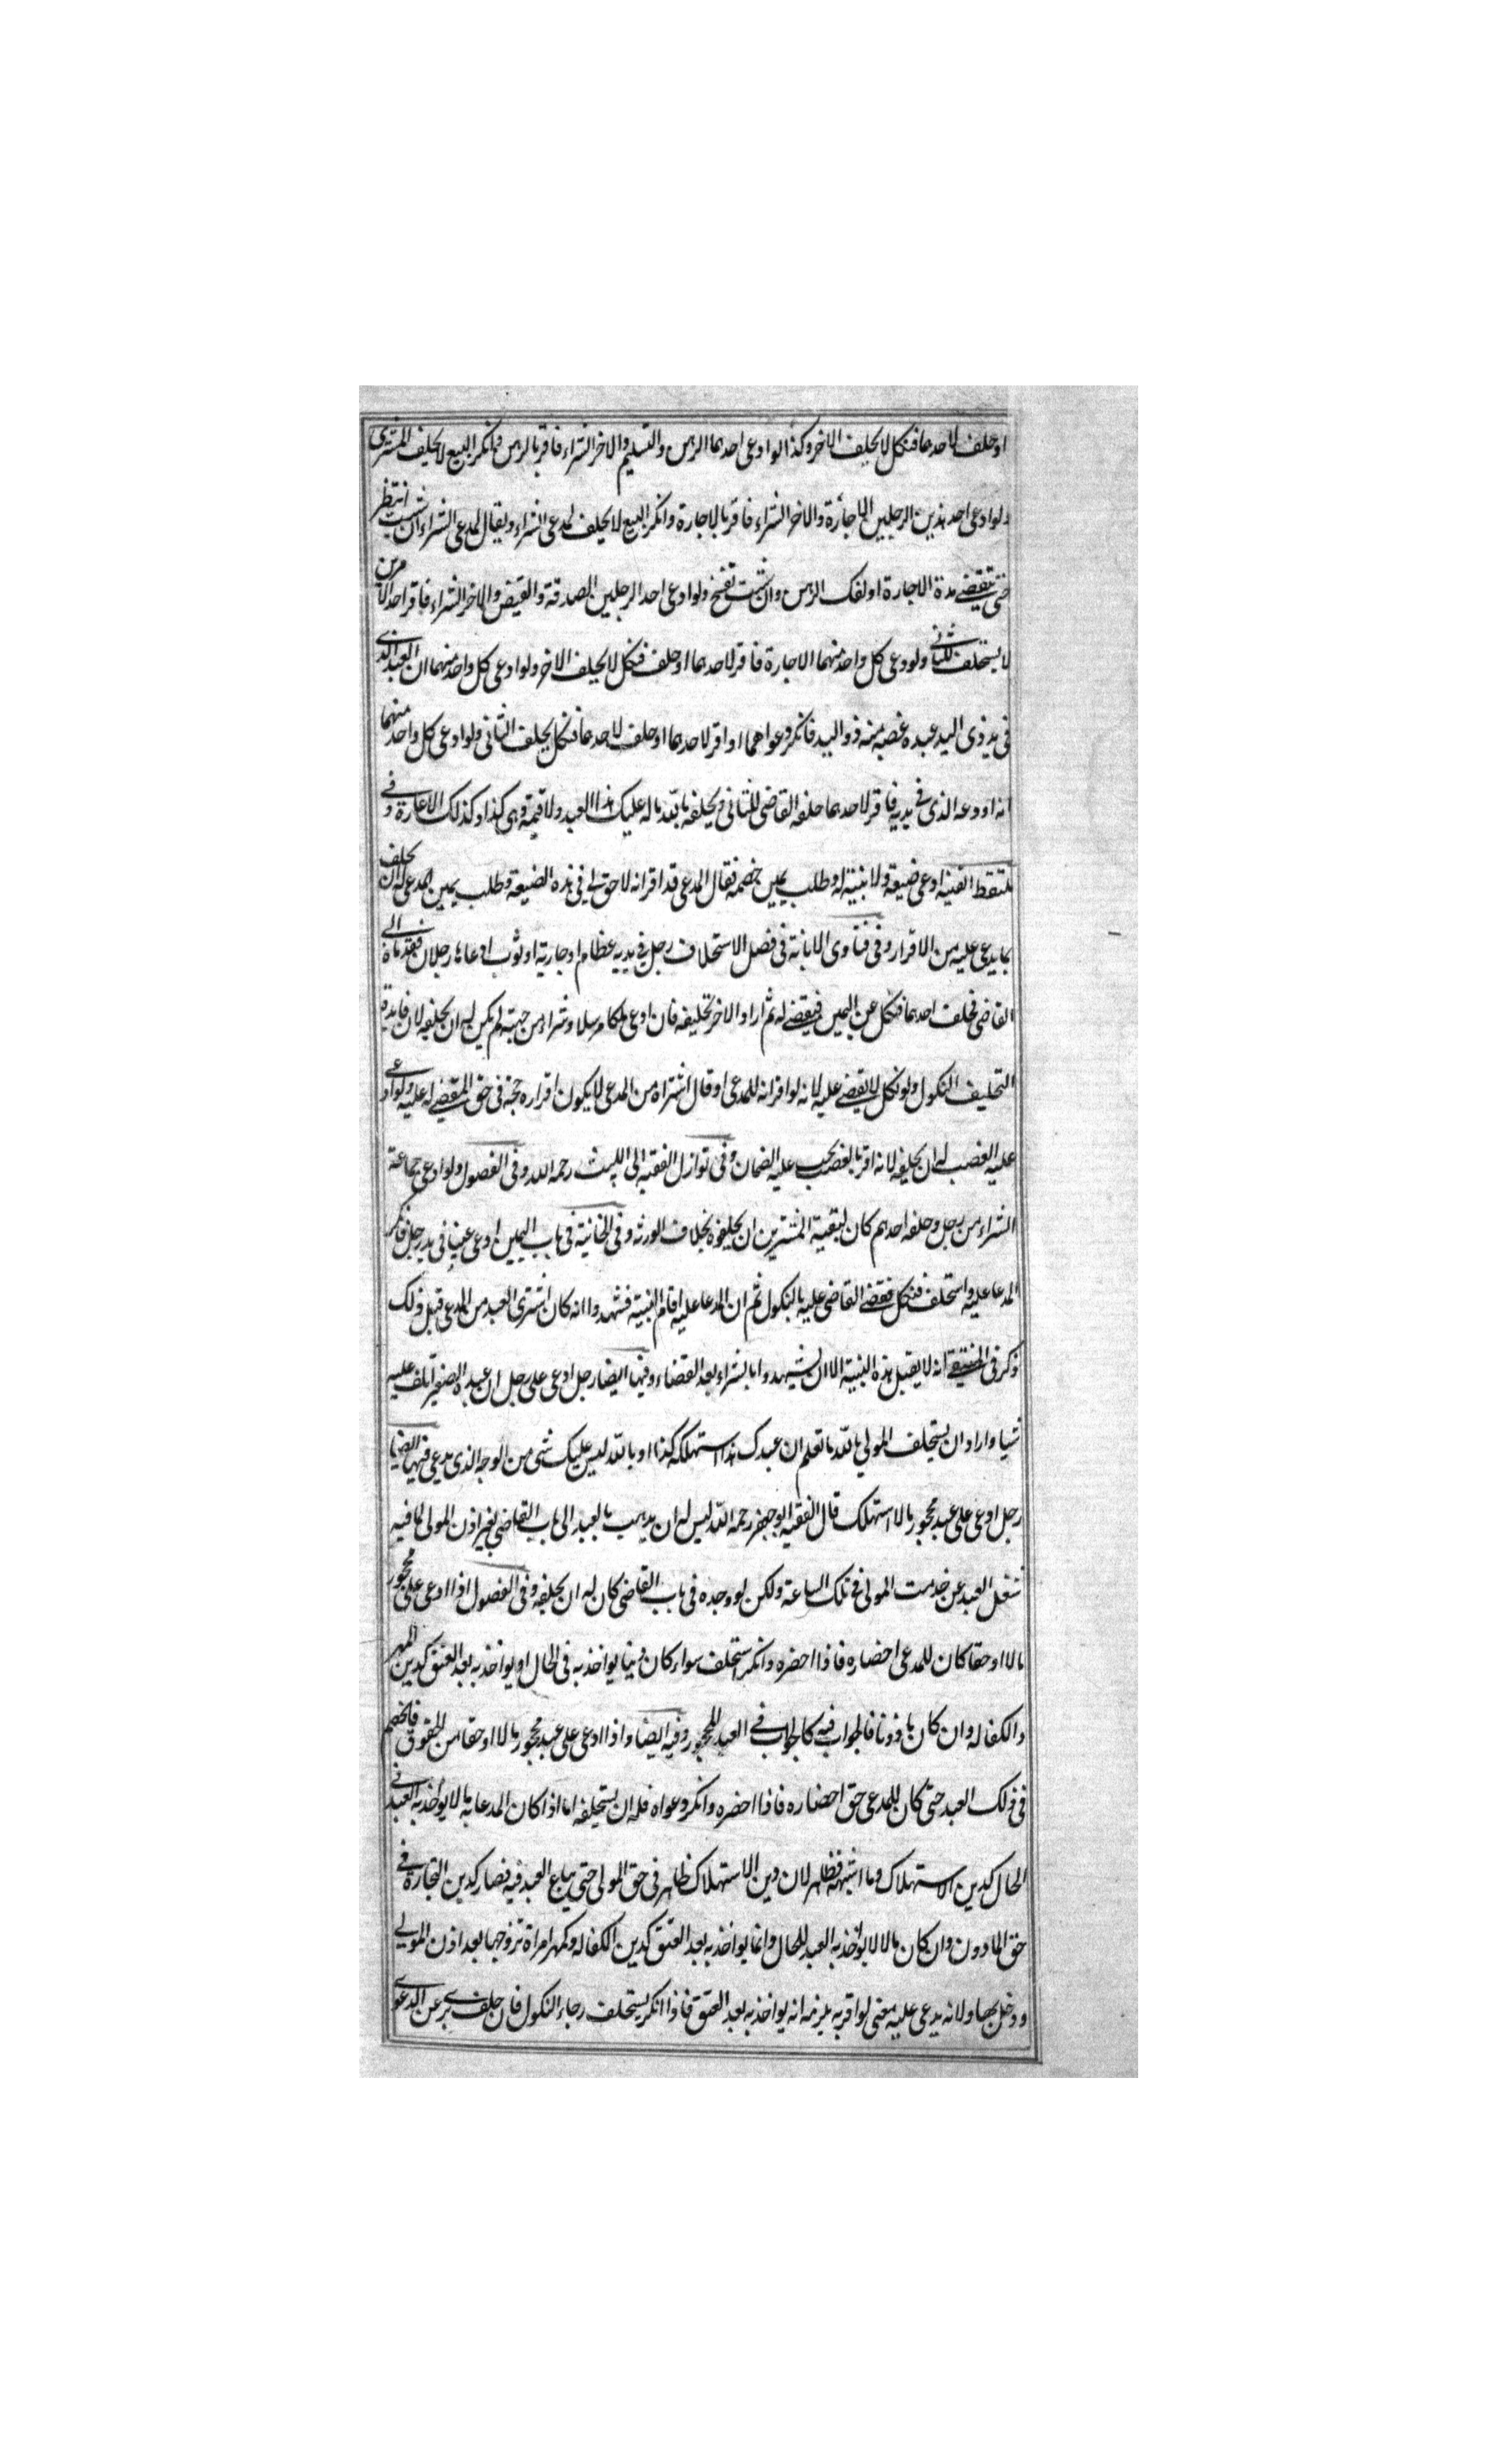 او حلف لاحدهما فنكل لا يحلف الاخر وكذا لو ادعى احدهما الرهن والتسليم والاخر الشراء فاقر بالرهن وانكر البيع لا يحلف المشترى
ولو ادعى احد هذين الرجلين الاجارة والاخر الشراء فاقر بالاجارة وانكر البيع لا يحلف لمدعى الشراء ويقال لمدعى الشراء ان شئت انتظر
حتى تنقضے مدة الاجارة او لفك الرهن وان شئت تفسخ ولو ادعى احد الرجلين الصدقة والقبض والاخر الشراء فاقر احد الامرين
لا يستحلف للثانى ولو دعى كل واحد منهما الاجارة فاقر لاحدهما او حلف فنكل لا يحلف الاخر ولو ادعى كل واحد منهما ان العبد الذى
فى يد ذى اليد عبده غصبه منه ذو اليد فانكر دعواهما او اقر لاحدهما او حلف لاحدهما فنكل يحلف الثانى ولو ادعى كل واحد منهما
انه اودعه الذى فى يديه فاقر لاحدهما حلفه القاضى للثانى ويحلفه بالله ما له عليك هذا العبد ولا قيمة وهى كذا وكذلك الاعارة وفے
ملتقط ادعى ضيعة ولا بينة له وطلب يمين خصمه فقال المدعى قد اقر انه لا حق لى فى هذه الضيعة وطلب يمين المدعى له ان يحلف
بما يدعى عليه من الاقرار وفى فتاوى الابانة فى فصل الاستحلاف رجل فى يديه او جارية او ثوب ادعاها رجلان فقدماه الى
القاضى فحلف احدهما فنكل عن اليمين فيقضے له ثم اراد الاخر تحليفه فان ادعى ملكا مرسلا او شراء من جهته لم يكن له ان يحلفه لان فايدة
التحليف النكول ولو نكل لا يقضے عليه لانه لو اقر انه للمدعى او قال اشتراه من المدعى لا يكون اقراره حجة فى حق المقضے له عليه ولو ادعى
عليه الغصب له ان يحلفه لانه اقر بالغصب يجب عليه الضمان وفى نوازل الفقيه ابى الليث رحمه الله وفى الفصول ولو ادعى جماعة
الشراء من رجل وحلفه احدهم كان لبقية المشترين ان يحلفوه بخلاف الورثه وفى الخانية فى باب اليمين ادعى عينا فى يد رجل فانكر
المدعا عليه واستحلف فنكل فقضے القاضى عليه بالنكول ثم ان المدعا عليه اقام البينة فشهدوا انه كان اشترى العبد من المدعى قبل ذلك
ذكر فى المنتقے انه لا يقبل هذه البينة الا ان يشهدوا بالشراء بعد القضاء وفيها ايضا رجل ادعى على رجل ان عبده الصغير اتلف عليه
شيا واراد ان يستحلف المولى بالله ما تعلم ان عبدك هذا استهلكه كذا او بالله ليس عليك شى من الوجه الذى يدعى فيها ايضا
رجل ادعى على عبد محجور بالاستهلاك قال الفقيه ابو جعفر رحمه الله ليس له ان يذهب بالعبد الى باب القاضى بغير اذن المولى لما فيه
شغل العبد عن خدمت المولى فى تلك الساعة ولكن لو وجده فى باب القاضى كان له ان يحلفه وفى الفصول اذا ادعى على محجور
مالا او حقا كان للمدعى احضاره فاذا احضره وانكر استحلف سواء كان دينا يواخذ به فى الحال او يواخذ به بعد العتق كدين المهر
والكفاله وان كان ماذونا فالجواب فيه كالجواب فے العبد للمحجور وفيه ايضا واذا ادعى على عبد محجور مالا او حقا من الحقوق فالخصم
فى ذلك العبد حتى كان للمدعى حق احضاره فاذا احضره وانكر دعواه فله ان يستحلفه اما اذا كان المدعا به مالا يواخذ به العبد فى
الحال كدين الاستهلاك وما اشبهه فظاهر لان دين الاستهلاك ظاهر فى حق المولى حتى يباع العبد فيه فصار كدين التجارة فے
حق الماذون وان كان مالا لا يواخذ به العبد للحال وانما يواخذ به بعد العتق كدين الكفاله وكمهر امراة تزوجها بعد اذن المولى
ودخل بها ولانه يدعى عليه معنى لو اقر به يلزمه انه يواخذ به بعد العتق فاذا انكر يستحلف رجاء النكول فان حلف برى عن الدعوى